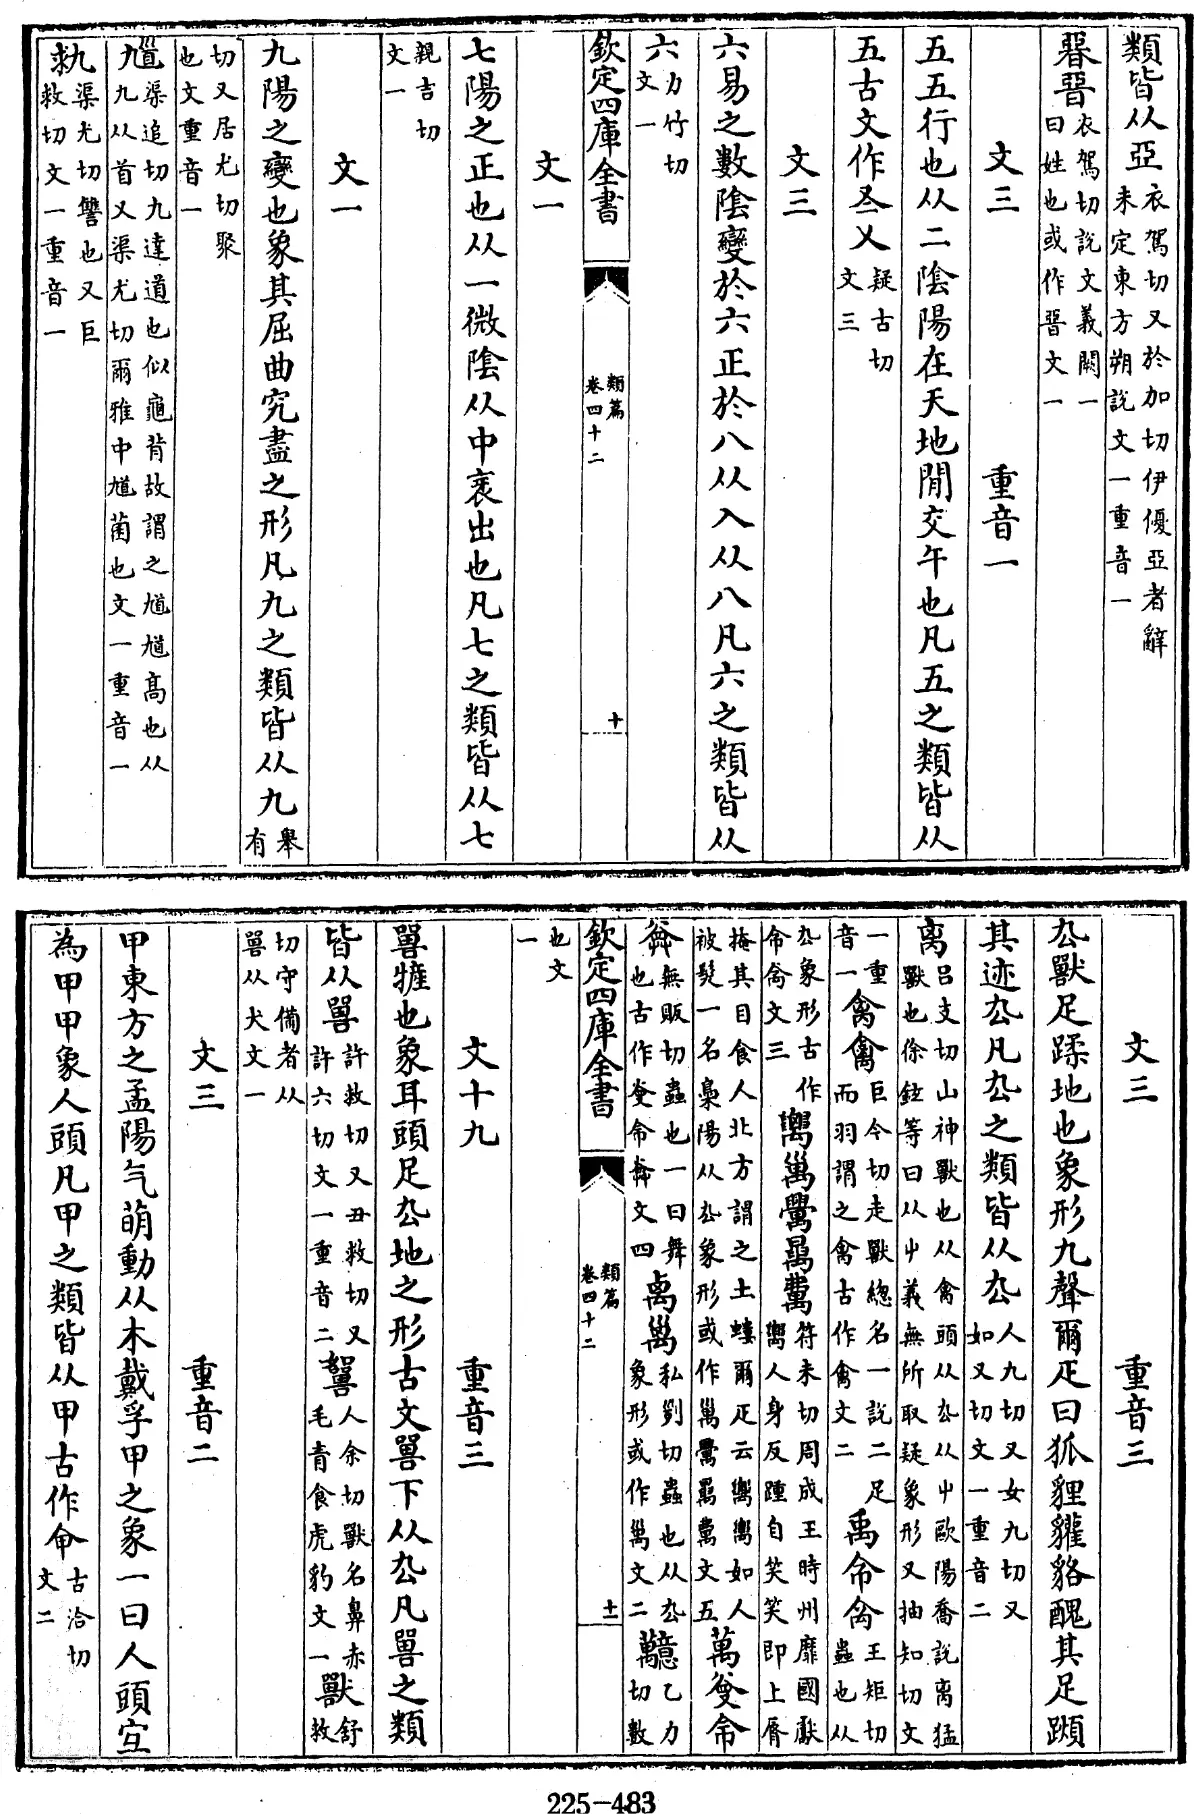 類皆从亞衣駕切又於加切伊優亞者辭未定東方朔説文一重音一
晷𣊭衣駕切説文義闕一曰姓也或作𣊭文一
文三 重音一
五五行也从二陰陽在天地閒交午也凡五之類皆从
五古文作㐅疑古切文三
文三
六易之數陰變於六正於八从入从八凡六之類皆从
六力竹切文一
欽定四庫全書 類篇卷四十二 十
文一
七陽之正也从一微陰从中衺出也凡七之類皆从七
親吉切文一
文一
九陽之變也象其屈曲究盡之形凡九之類皆从九舉有
切又居尤切聚也文重音一
馗渠追切九達道也似龜背故謂之馗馗高也从九从首又渠尤切爾雅中馗菌也文一重音一
渠尤切讐也又巨救切文一重音一
文三 重音三
厹獸足蹂地也象形九聲爾疋曰狐貍貛貉醜其足蹞
其迹厹凡厹之類皆从厹人九切又女九切又如又切文一重音二
离呂支切山神獸也从禽頭从厹从屮歐陽喬説离猛獸也徐鉉等曰从屮義無所取疑象形又抽知切文
一重音一禽巨今切走獸總名一説二足而羽謂之禽古作禽文二禹王矩切蟲也从
厹象形古作命禽文三符未切周成王時州靡國獻人身反踵自笑笑即上脣
掩其目食人北方謂之土螻爾疋云如人被髮一名梟陽从厹象形或作文五萬
無販切蟲也一曰舞也古作文四禼私列切蟲也从厹象形或作文二乙力切數
欽定四庫全書 類篇卷四十二 十一
也文一
文十九 重音三
嘼㹌也象耳頭足厹地之形古文嘼下从厹凡嘼之類
皆从嘼許救切又丑救切又許六切文一重音二人余切獸名鼻赤毛青食虎豹文一獸舒救
切守備者从嘼从犬文一
文三 重音二
甲東方之孟陽气萌動从木戴孚甲之象一曰人頭宐
為甲甲象人頭凡甲之類皆从甲古作命古洽切文二
225-483